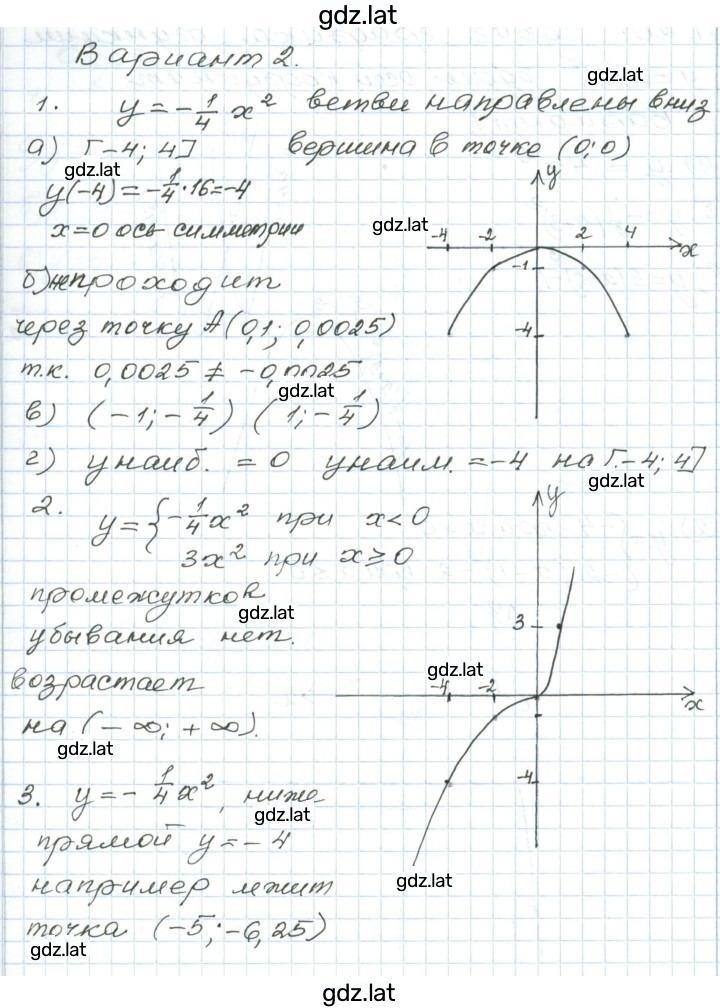 gdz.lat
Вариант 2.
gdz.lat
1. y = -1/4 x² ветви направлены вниз
а) [-4; 4] вершина в точке (0; 0)
gdz.lat
y(-4) = -1/4 · 16 = -4
x = 0 ось симметрии
gdz.lat
y
-4 -2 2 4
x
-1
-4
б) проходит
через точку A(0,1; 0,0025)
т.к. 0,0025 ≠ -0,0025
gdz.lat
в) (-1; -1/4) (1; -1/4)
г) y наиб. = 0 y наим. = -4 на [-4; 4]
gdz.lat
2. y = { -1/4 x² при x < 0
3x² при x ≥ 0
y
промежутков
gdz.lat
убывания нет.
3
возрастает
gdz.lat
-4 -2
x
на (-∞; +∞).
gdz.lat
-4
3. y = -1/4 x², ниже
gdz.lat
прямой y = -4
например лежит
gdz.lat
точка (-5; -6,25)
gdz.lat
gdz.lat